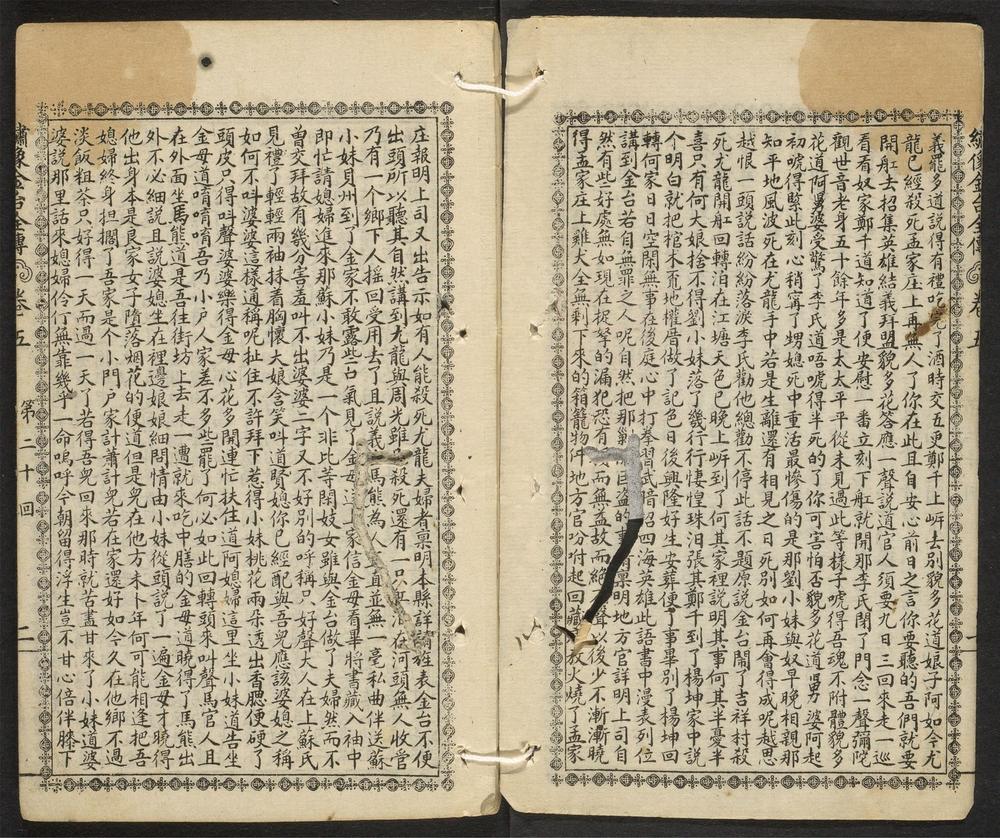 繡像金台全傳 卷五
義罷多道說得有禮吃完了酒時交五更鄭千上岍去別貌多花道娘子阿如今尤
龍已經殺死孟家庄上再無人了你在此且自安心前日之言你要聽的吾們就要
開舡去招集英雄結義拜盟貌多花答應一聲說道官人須要九日三回來走一巡
看看奴家鄭千道知道了便安慰一番立刻下舡就開那李氏閉了門念一聲彌陀
觀世音老身五十餘年多是太太平平從未見過此等樣子唬得吾魂不附體貌多
花道阿舅婆受驚了李氏道唔唬得半死的了你可害怕否貌多花道舅婆阿起
初唬得緊此刻心稍寗了甥媳死中重活最慘傷的是那劉小妹與奴早晚相親那
知平地風波死在尤龍手中若是生離還有相見之日死別如何再會得成呢越思
越恨一頭說話紛紛落淚李氏勸他總勸不停此話不題原說金台鬧了吉祥村殺
死尤龍開舡回轉泊在江塘天色已晚上岍到了何其家裡說明其事何其半憂半
喜只有何大娘捨不得劉小妹落了幾行行悽惶珠泪張其鄭千到了楊坤家中說
个明白就把棺木覔地權厝做了記色日後興隆好生安葬便了事畢別了楊坤回
轉何家日日空閑無事在後庭心中打拳習武暗招四海英雄此語書中漫表列位
講到金台若自無罪之人呢自然把那
盜的事
稟明地方官詳明上司自
然有些好處無如現在捉拏的漏犯恐有
而無益故而
聲以後少不漸漸曉
得孟家庄上雞犬全無剩下來的箱籠物件地方官吩咐起回藏
放火燒了孟家
庄報明上司又出告示如有人能殺死尤龍夫婦者稟明本縣詳
旌表金台不便
出頭所以聽其自然講到尤龍與周光雖
殺死還有一只
泊在河頭無人收管
乃有一个鄉下人搖回受用去了且說義
馬熊為人
直並無一毫私曲伴送蘇
小妹貝州到了金家不敢露些口氣見了金母
上家信金母看畢將書藏入袖中
即忙請媳婦進來那蘇小妹乃是一个非比等閑妓女雖與金台做了夫婦然而不
曾交拜故有幾分害羞叫不出婆婆二字又不好別的呼稱只好聲大人在上蘇氏
見禮了輕輕兩袖抹着胸懷大娘含笑叫道賢媳你已經配與吾兒應該婆媳之稱
如何不叫婆婆這樣通稱呢扯住不許拜下惹得小妹桃花兩朶透出香腮便硬了
頭皮只得叫聲婆婆樂得金母心花多開連忙扶住道阿媳婦這里坐小妹道告坐
金母道唷唷唷吾乃小戶人家差不多些罷了何必如此回轉頭來叫聲馬官人且
在外面坐馬熊道是吾往街坊上去走一遭就來吃中膳的金母道曉得了馬熊出
外不必細說且說婆媳坐在裡邊娘娘細問情由小妹從頭說了一遍金母才曉得
他出身本是良家女子墮落烟花的便道但是兒在他方未卜年何可能相逢把吾
媳婦終身担擱了吾家是个小門戶家計蕭計兒若在家還好如今久在他鄉不過
淡飯粗茶只好得一天而過一天了若得吾兒回來那時就苦盡甘來了小妹道婆
婆說那里話來媳婦伶仃無靠幾乎一命嗚呼今朝留得浮生豈不甘心倍伴膝下
繡像金台全傳 卷五 第二十回 二